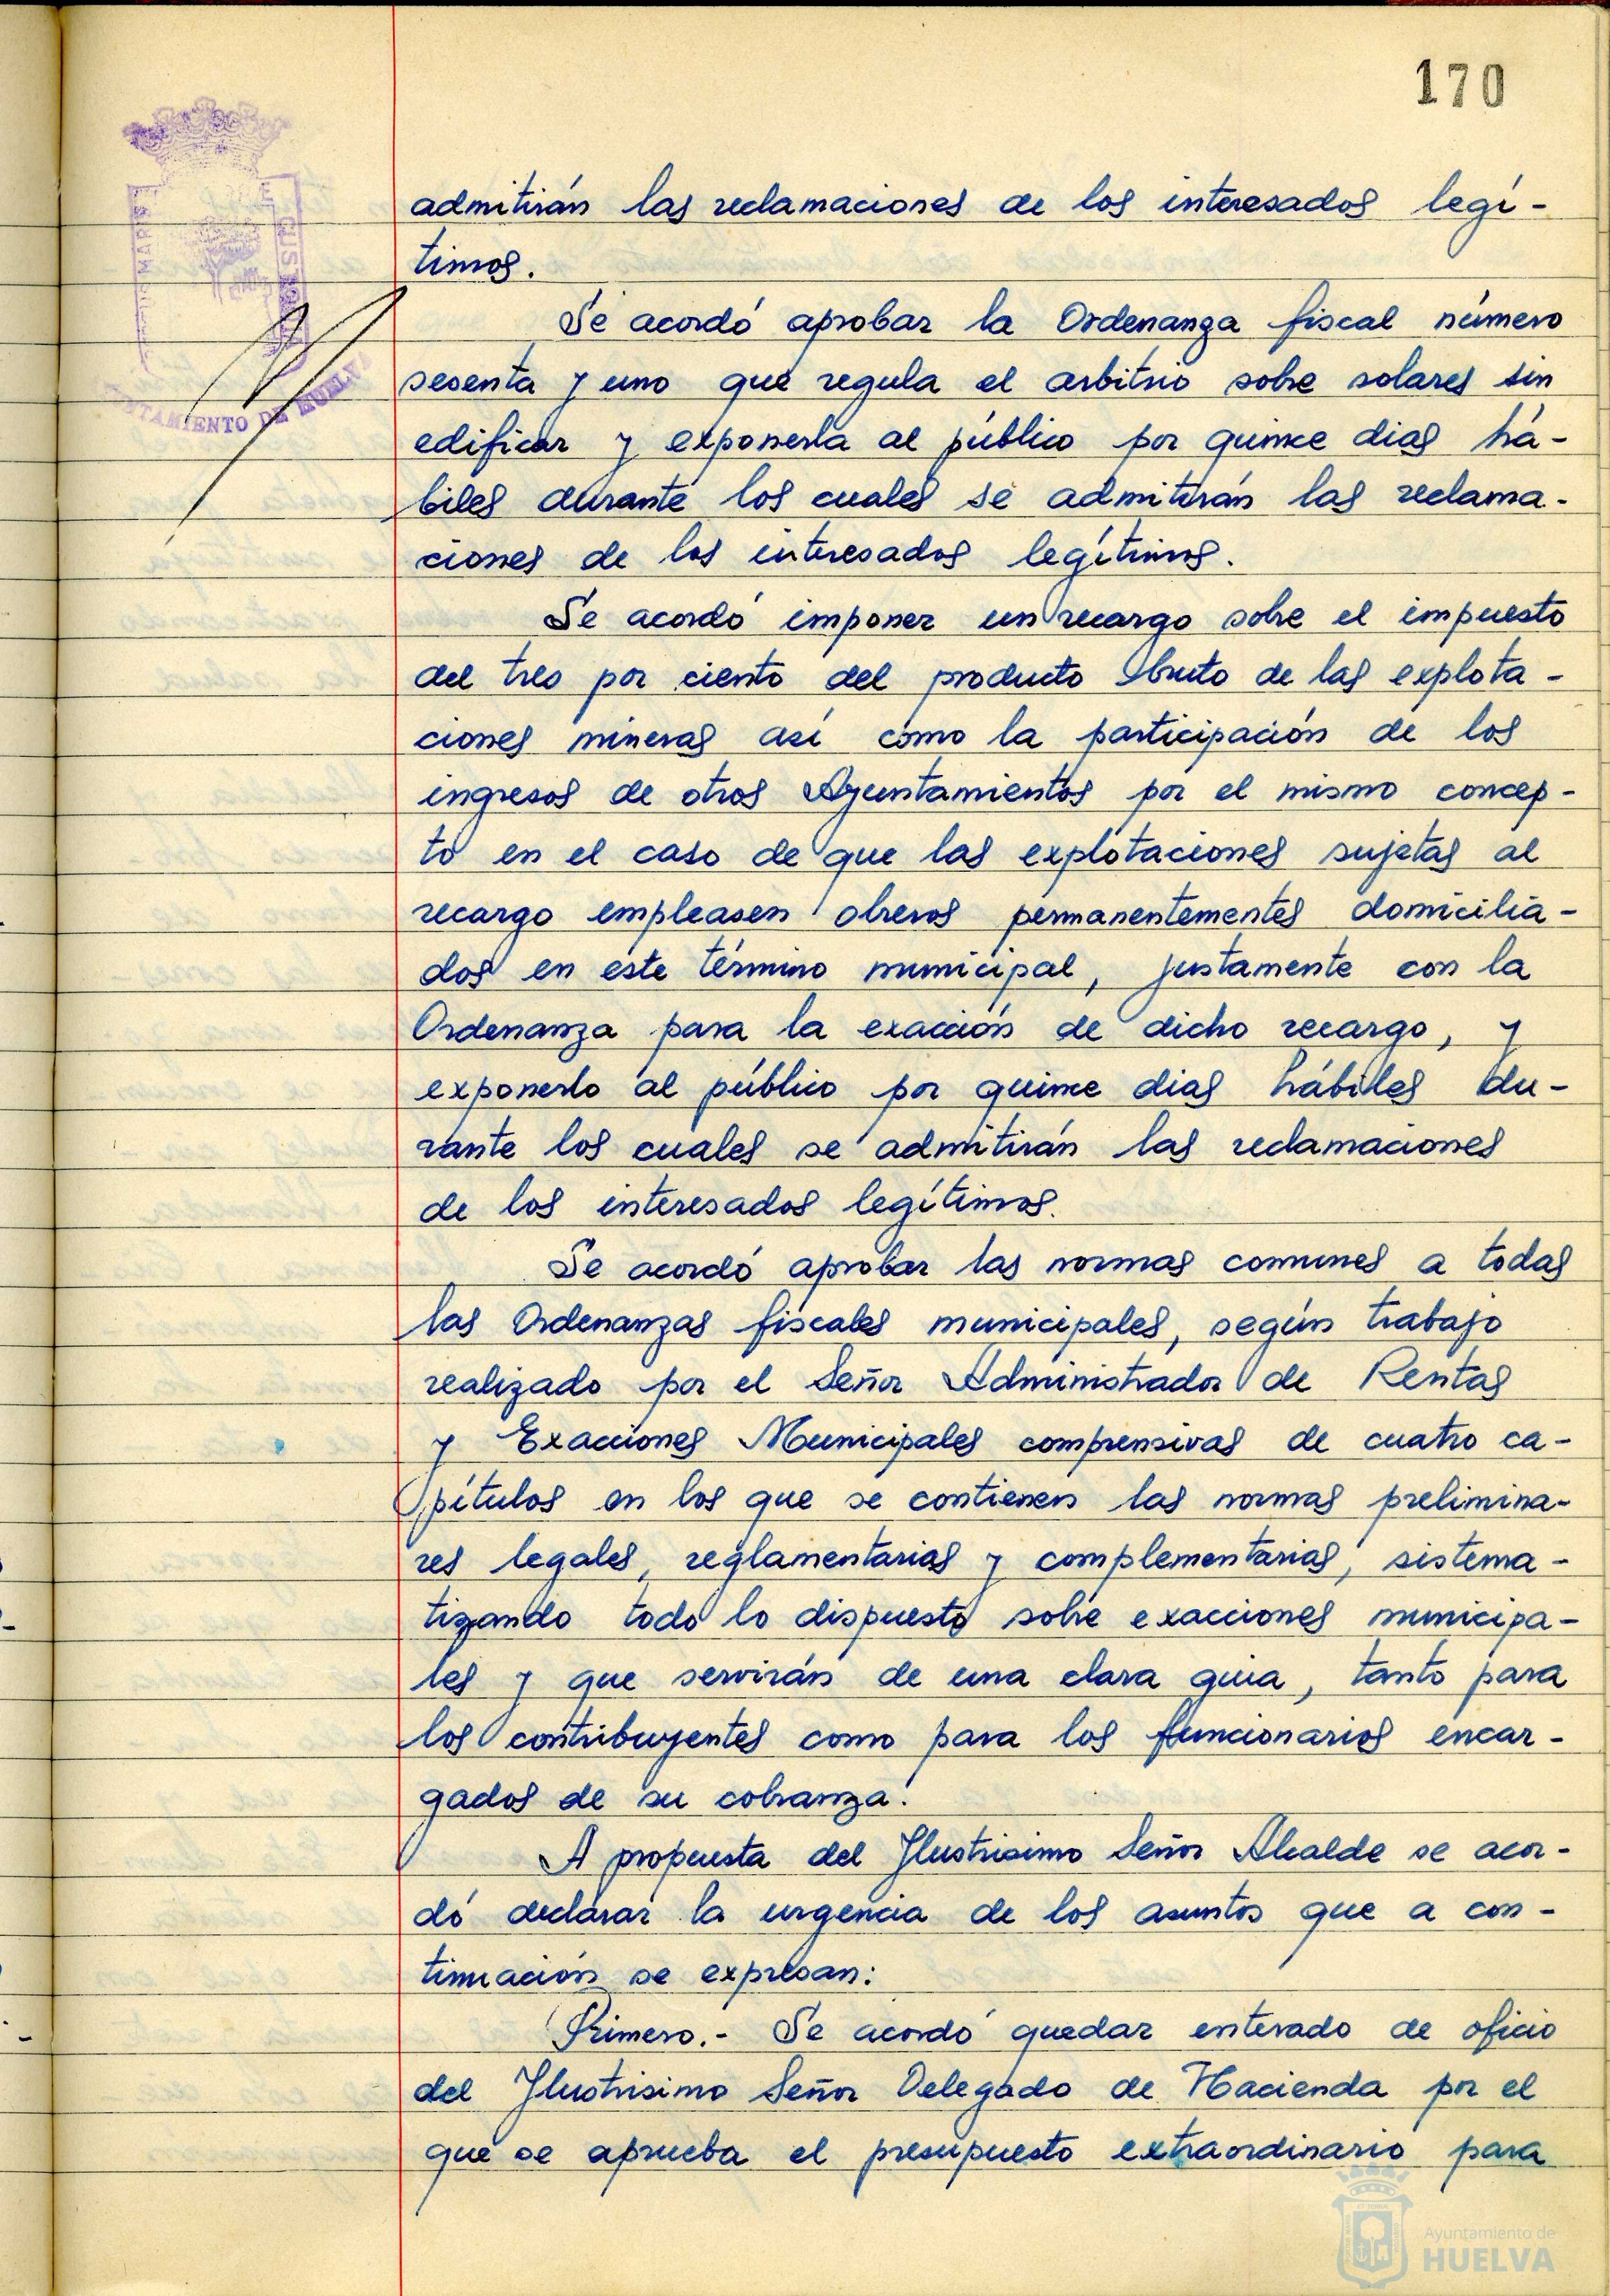 170
admitirán las reclamaciones de los interesados legí-
timos.
Se acordó aprobar la Ordenanza fiscal número
sesenta y uno que regula el arbitrio sobre solares sin
edificar y exponerla al público por quince dias há-
biles durante los cuales se admitirán las reclama-
ciones de los interesados legítimos.
Se acordó imponer un recargo sobre el impuesto
del tres por ciento del producto bruto de las explota-
ciones mineras así como la participación de los
ingresos de otros Ayuntamientos por el mismo concep-
to en el caso de que las explotaciones sujetas al
recargo empleasen obreros permanentementes domicilia-
dos en este término municipal, justamente con la
Ordenanza para la exacción de dicho recargo, y
exponerlo al público por quince dias hábiles du-
rante los cuales se admitirán las reclamaciones
de los interesados legítimos.
Se acordó aprobar las normas comunes a todas
las Ordenanzas fiscales municipales, según trabajo
realizado por el Señor Administrador de Rentas
y Exacciones Municipales comprensivas de cuatro ca-
pítulos en los que se contienen las normas prelimina-
res legales, reglamentarias y complementarias, sistema-
tizando todo lo dispuesto sobre exacciones municipa-
les y que servirán de una clara guia, tanto para
los contribuyentes como para los funcionarios encar-
gados de su cobranza.
A propuesta del Ilustrisimo Señor Alcalde se acor-
dó declarar la urgencia de los asuntos que a con-
tinuación se expresan:
Primero.- Se acordó quedar enterado de oficio
del Ilustrisimo Señor Delegado de Hacienda por el
que se aprueba el presupuesto extraordinario para
AYUNTAMIENTO DE HUELVA
Ayuntamiento de
HUELVA